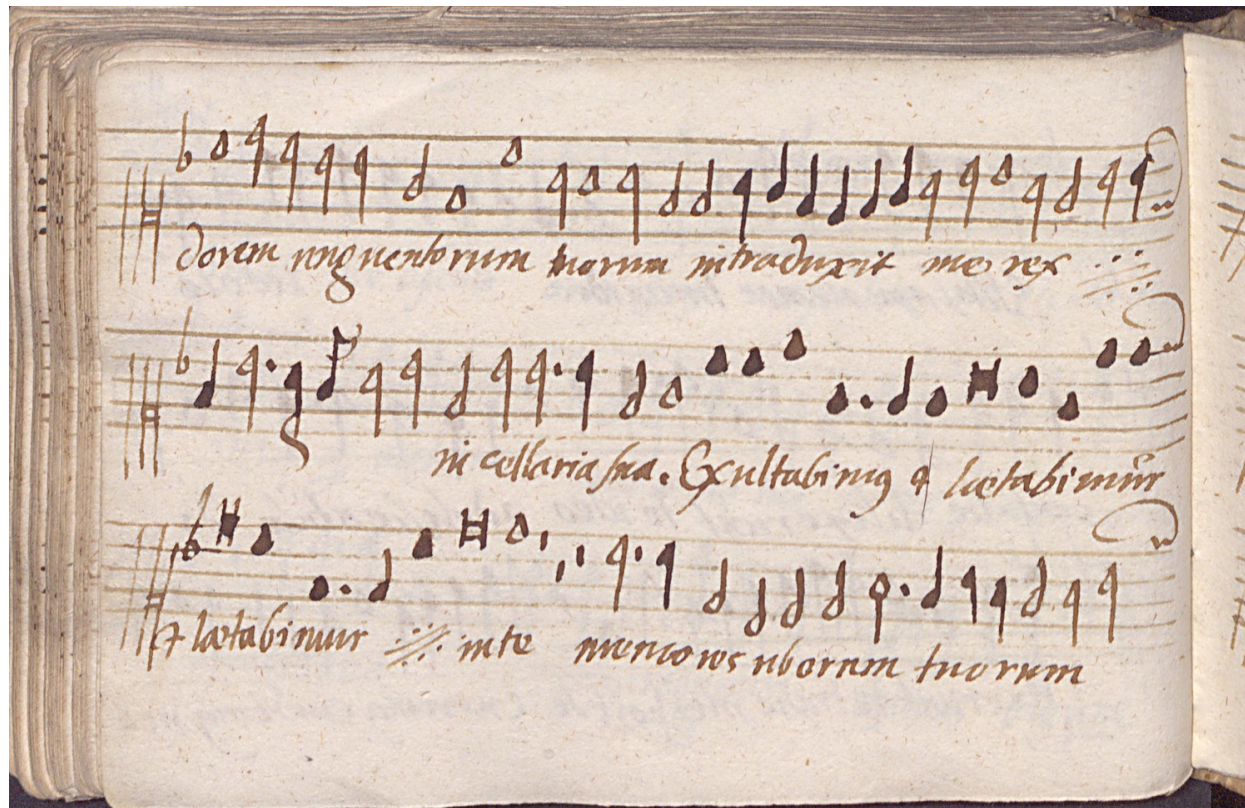 dorem unguentorum tuorum intraduxit me rex
in cellaria sua. Exultabimus & lætabimur
& lætabimur in te memores uborum tuorum